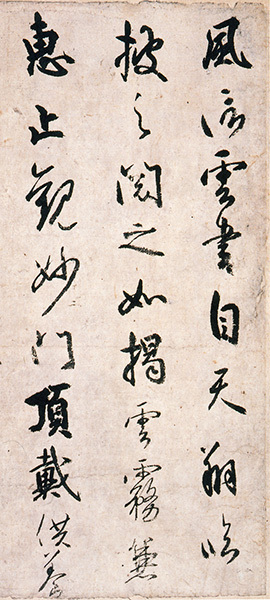 風信雲書自天翔臨
披之閲之如揭雲霧兼
惠止觀妙門頂戴供養